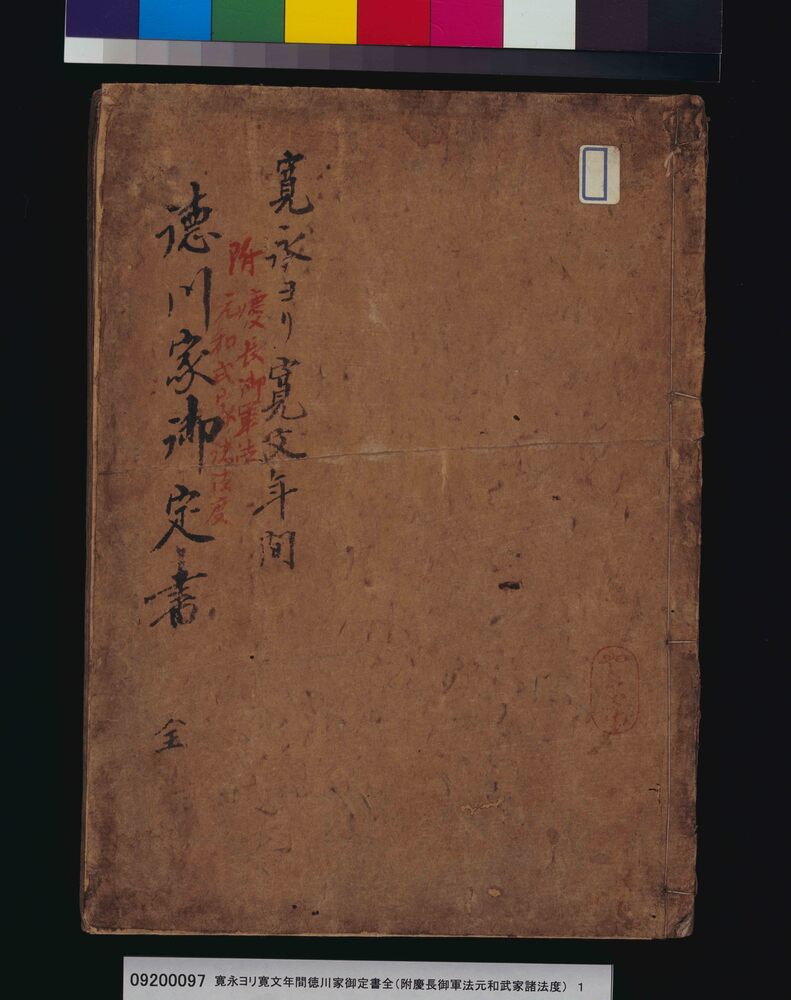 寛永ヨリ寛文年間
附 慶長御軍法
元和武家諸法度
徳川家御定書 全
09200097 寛永ヨリ寛文年間徳川家御定書全(附慶長御軍法元和武家諸法度) 1